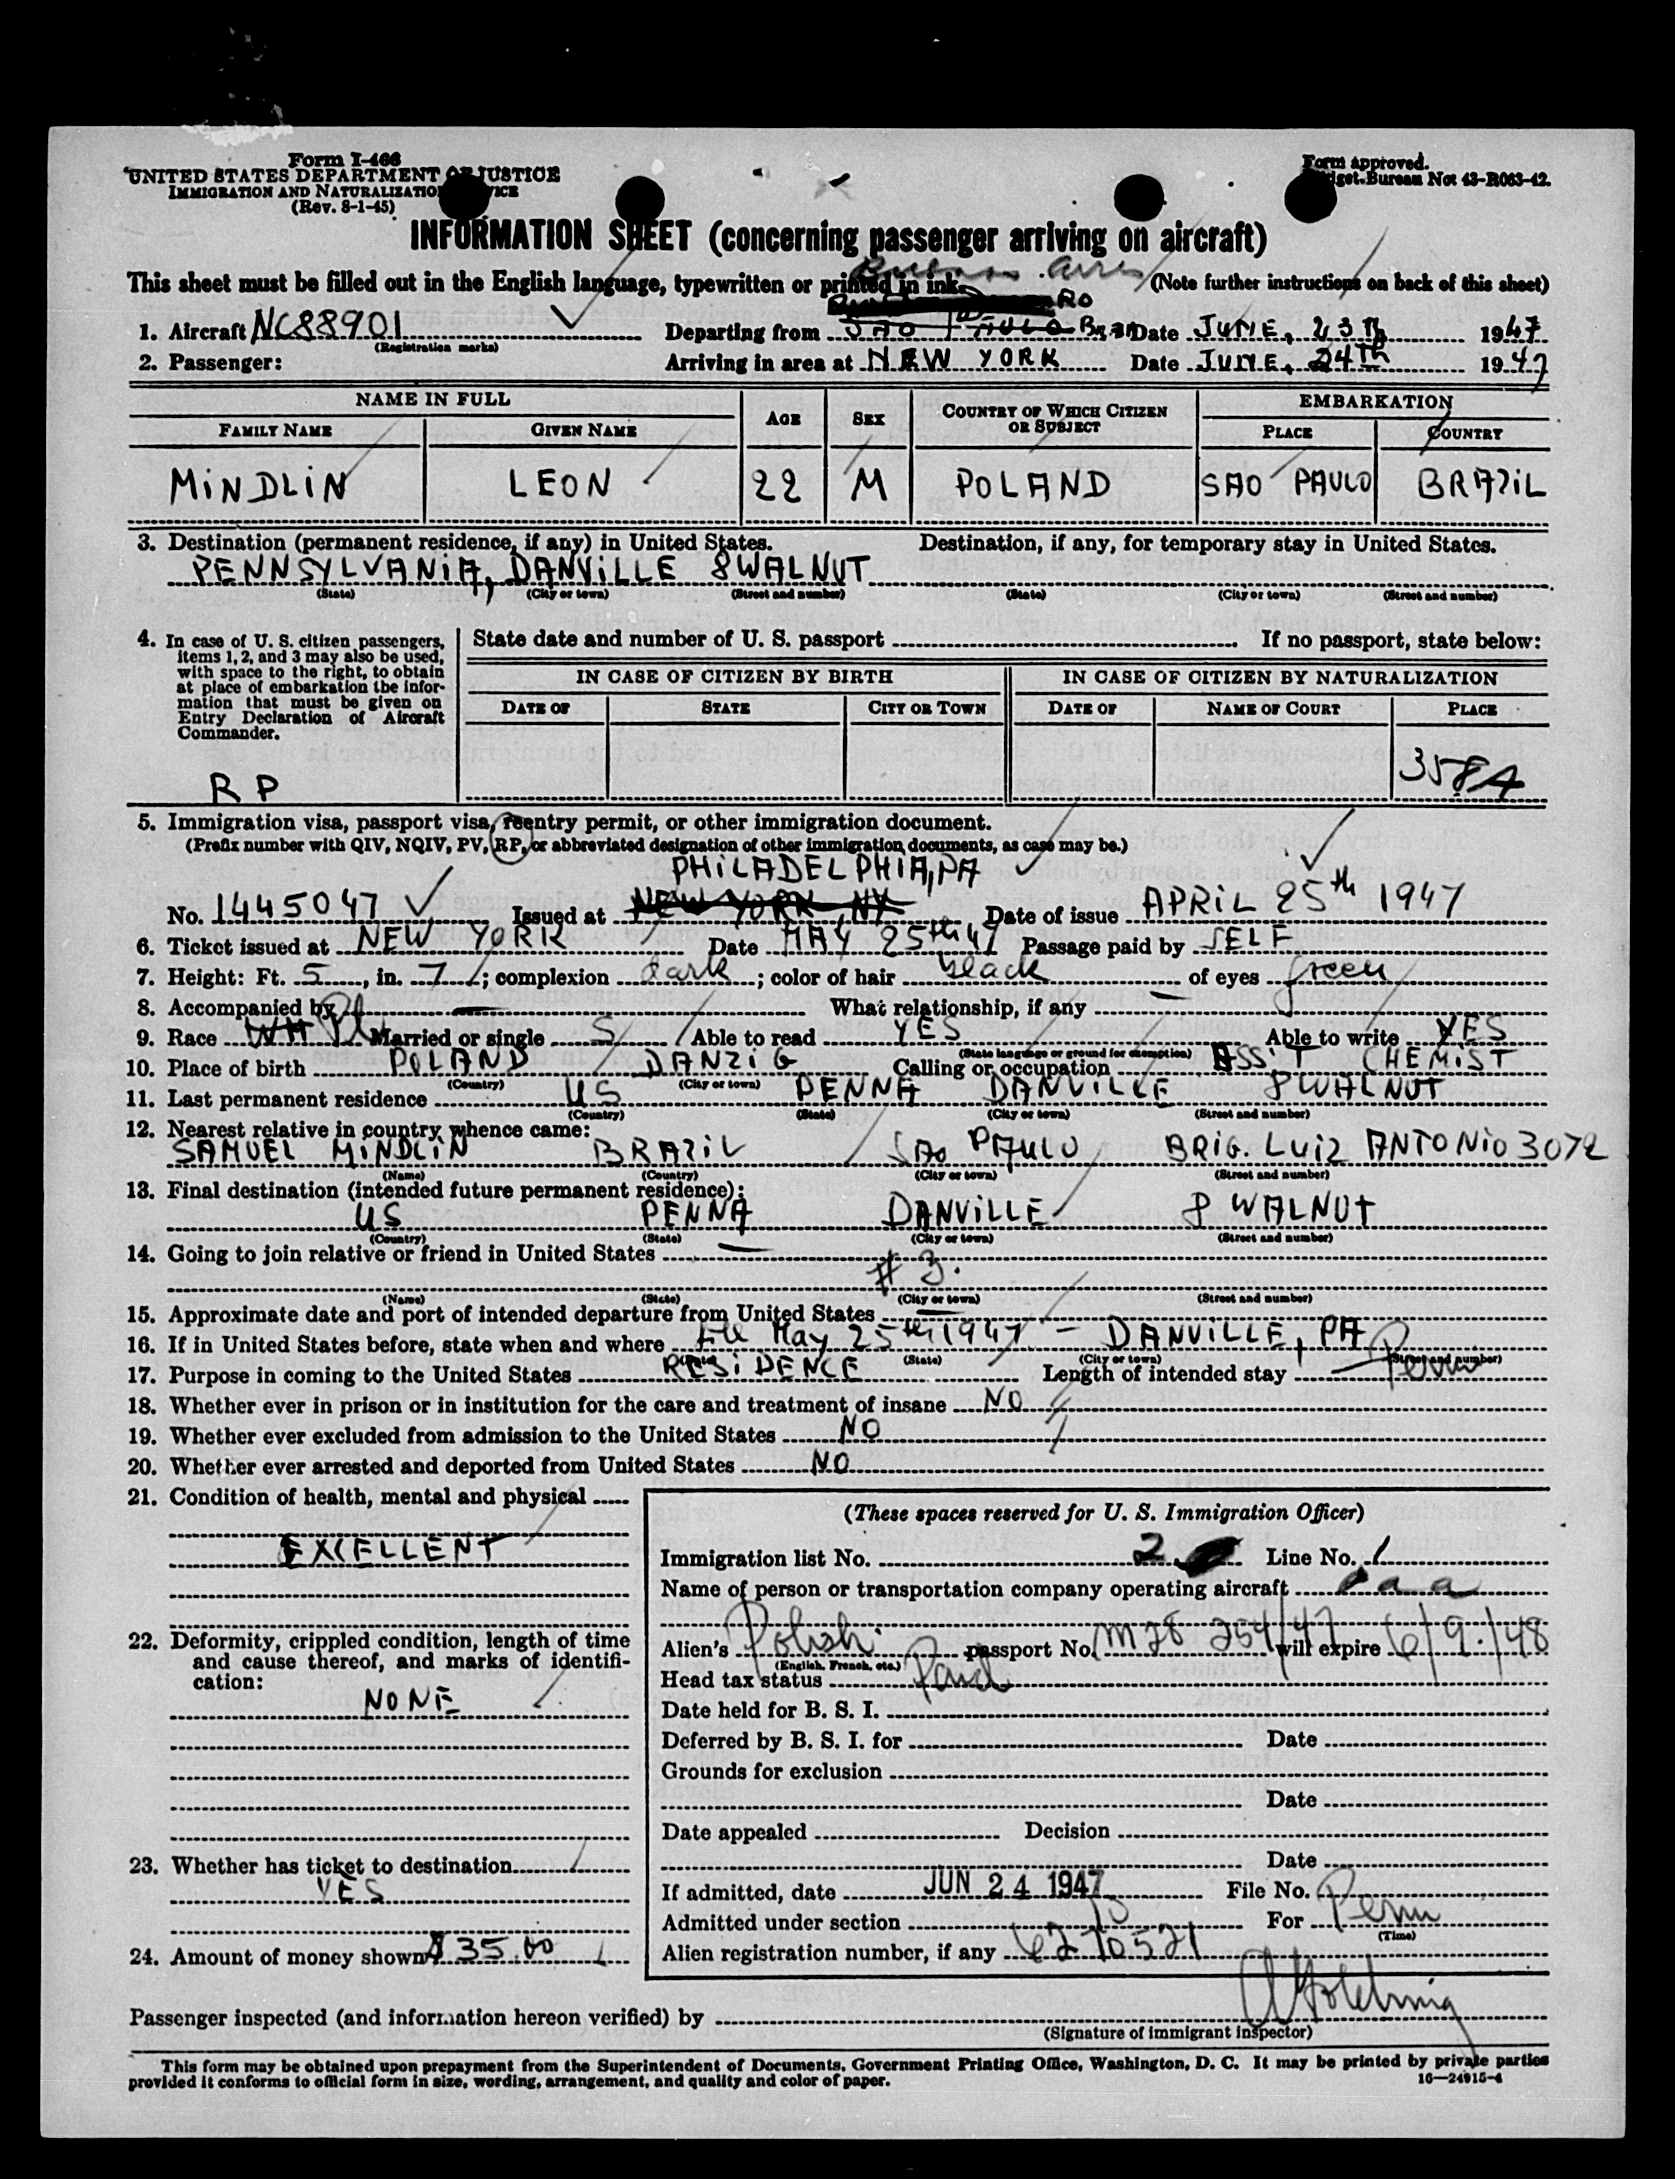 Form I-466
UNITED STATES DEPARTMENT OF JUSTICE
IMMIGRATION AND NATURALIZATION SERVICE
(Rev. 8-1-45)
Form approved.
Budget Bureau No. 43-R063-42.
INFORMATION SHEET (concerning passenger arriving on aircraft)
This sheet must be filled out in the English language, typewritten or printed in ink. (Note further instructions on back of this sheet)
Buenos Aires
1. Aircraft NC88901 Departing from SAO PAULO Date JUNE, 23 1947
(Registration marks)
2. Passenger: Arriving in area at NEW YORK Date JUNE, 24th 1947
NAME IN FULL AGE SEX COUNTRY OF WHICH CITIZEN OR SUBJECT EMBARKATION
FAMILY NAME GIVEN NAME PLACE COUNTRY
MINDLIN LEON 22 M POLAND SAO PAULO BRAZIL
3. Destination (permanent residence, if any) in United States. Destination, if any, for temporary stay in United States.
PENNSYLVANIA, DANVILLE 8 WALNUT
(State) (City or town) (Street and number) (State) (City or town) (Street and number)
4. In case of U. S. citizen passengers, items 1, 2, and 3 may also be used, with space to the right, to obtain at place of embarkation the information that must be given on Entry Declaration of Aircraft Commander.
State date and number of U. S. passport If no passport, state below:
IN CASE OF CITIZEN BY BIRTH IN CASE OF CITIZEN BY NATURALIZATION
DATE OF STATE CITY OR TOWN DATE OF NAME OF COURT PLACE
R P 358A
5. Immigration visa, passport visa, reentry permit, or other immigration document.
(Prefix number with QIV, NQIV, PV, RP, or abbreviated designation of other immigration documents, as case may be.)
PHILADELPHIA, PA
No. 1445047 Issued at NEW YORK NY Date of issue APRIL 25th 1947
6. Ticket issued at NEW YORK Date MAY 25th 47 Passage paid by SELF
7. Height: Ft. 5, in. 7; complexion dark; color of hair black of eyes green
8. Accompanied by — What relationship, if any —
9. Race WH Pol Married or single S Able to read YES Able to write YES
(State language or ground for exemption)
10. Place of birth POLAND DANZIG Calling or occupation ASS'T CHEMIST
(Country) (City or town)
11. Last permanent residence US PENNA DANVILLE 8 WALNUT
(Country) (State) (City or town) (Street and number)
12. Nearest relative in country whence came:
SAMUEL MINDLIN BRAZIL SAO PAULO BRIG. LUIZ ANTONIO 3072
(Name) (Country) (City or town) (Street and number)
13. Final destination (intended future permanent residence):
US PENNA DANVILLE 8 WALNUT
(Country) (State) (City or town) (Street and number)
14. Going to join relative or friend in United States —
# 3.
(Name) (State) (City or town) (Street and number)
15. Approximate date and port of intended departure from United States —
16. If in United States before, state when and where till May 25th 1947 — DANVILLE, PA
(State) (City or town) (Street and number)
17. Purpose in coming to the United States RESIDENCE Length of intended stay — Perm
18. Whether ever in prison or in institution for the care and treatment of insane NO
19. Whether ever excluded from admission to the United States NO
20. Whether ever arrested and deported from United States NO
21. Condition of health, mental and physical
EXCELLENT
22. Deformity, crippled condition, length of time and cause thereof, and marks of identification:
NONE
23. Whether has ticket to destination
YES
24. Amount of money shown $35.00
(These spaces reserved for U. S. Immigration Officer)
Immigration list No. 2 Line No. 1
Name of person or transportation company operating aircraft paa
Alien's Polish passport No. M78 254/47 will expire 6/9/48
(English, French, etc.)
Head tax status Paid
Date held for B. S. I.
Deferred by B. S. I. for Date
Grounds for exclusion
Date
Date appealed Decision
Date
If admitted, date JUN 24 1947 File No.
Admitted under section For Perm
(Time)
Alien registration number, if any 6270521
Passenger inspected (and information hereon verified) by
(Signature of immigrant inspector)
This form may be obtained upon prepayment from the Superintendent of Documents, Government Printing Office, Washington, D. C. It may be printed by private parties
provided it conforms to official form in size, wording, arrangement, and quality and color of paper. 16—24915-4